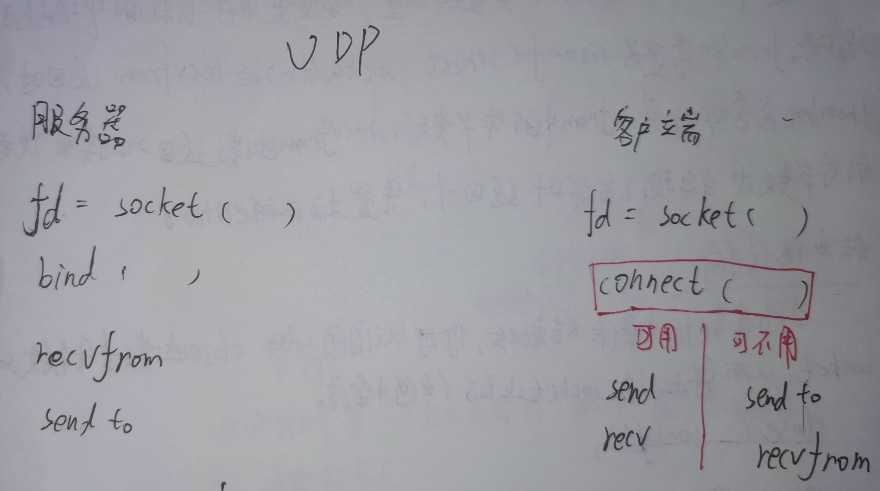 UDP
服务器
fd = socket ( )
bind ( )
recvfrom
send to
客户端
fd = socket ( )
connect ( )
可用
可不用
send
recv
send to
recvfrom